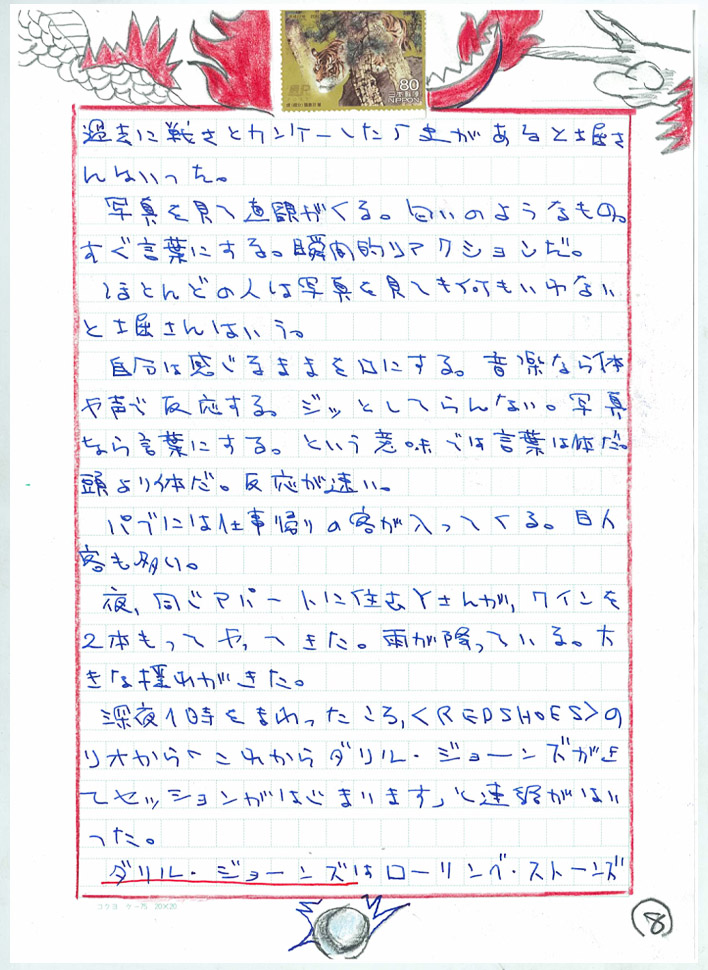 80
日本郵便
NIPPON
過去に戦さとカンケーした歴史があると土屋さ
んはいった。
写真を見て直観がくる。匂いのようなもの。
すぐ言葉にする。瞬間的リアクションだ。
ほとんどの人は写真を見ても何もいわない
と土屋さんはいう。
自分は感じるままを口にする。音楽なら体
や声で反応する。ジッとしてらんない。写真
なら言葉にする。という意味では言葉は体だ。
頭より体だ。反応が速い。
パブには仕事帰りの客が入ってくる。白人
客も多い。
夜、同じアパートに住むYさんが、ワインを
2本もってやってきた。雨が降っている。大
きな揺れがきた。
深夜1時をまわったころ、<REDSHOES>の
リオから「これからダリル・ジョーンズがき
てセッションがはじまります」と連絡がはい
った。
ダリル・ジョーンズはローリング・ストーンズ
コクヨ ケ-75 20×20
8